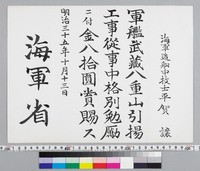 海軍造船中技士 平賀 譲
軍艦武藏八重山引揚
工事從事中格別勉励
ニ付金八拾圓賞賜ス
明治三十五年十月十三日
海軍省